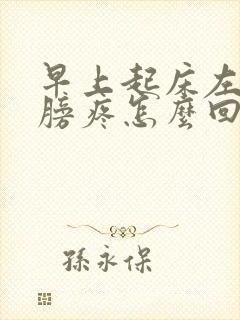 早上起床左
膀疼怎麼回
孫永保